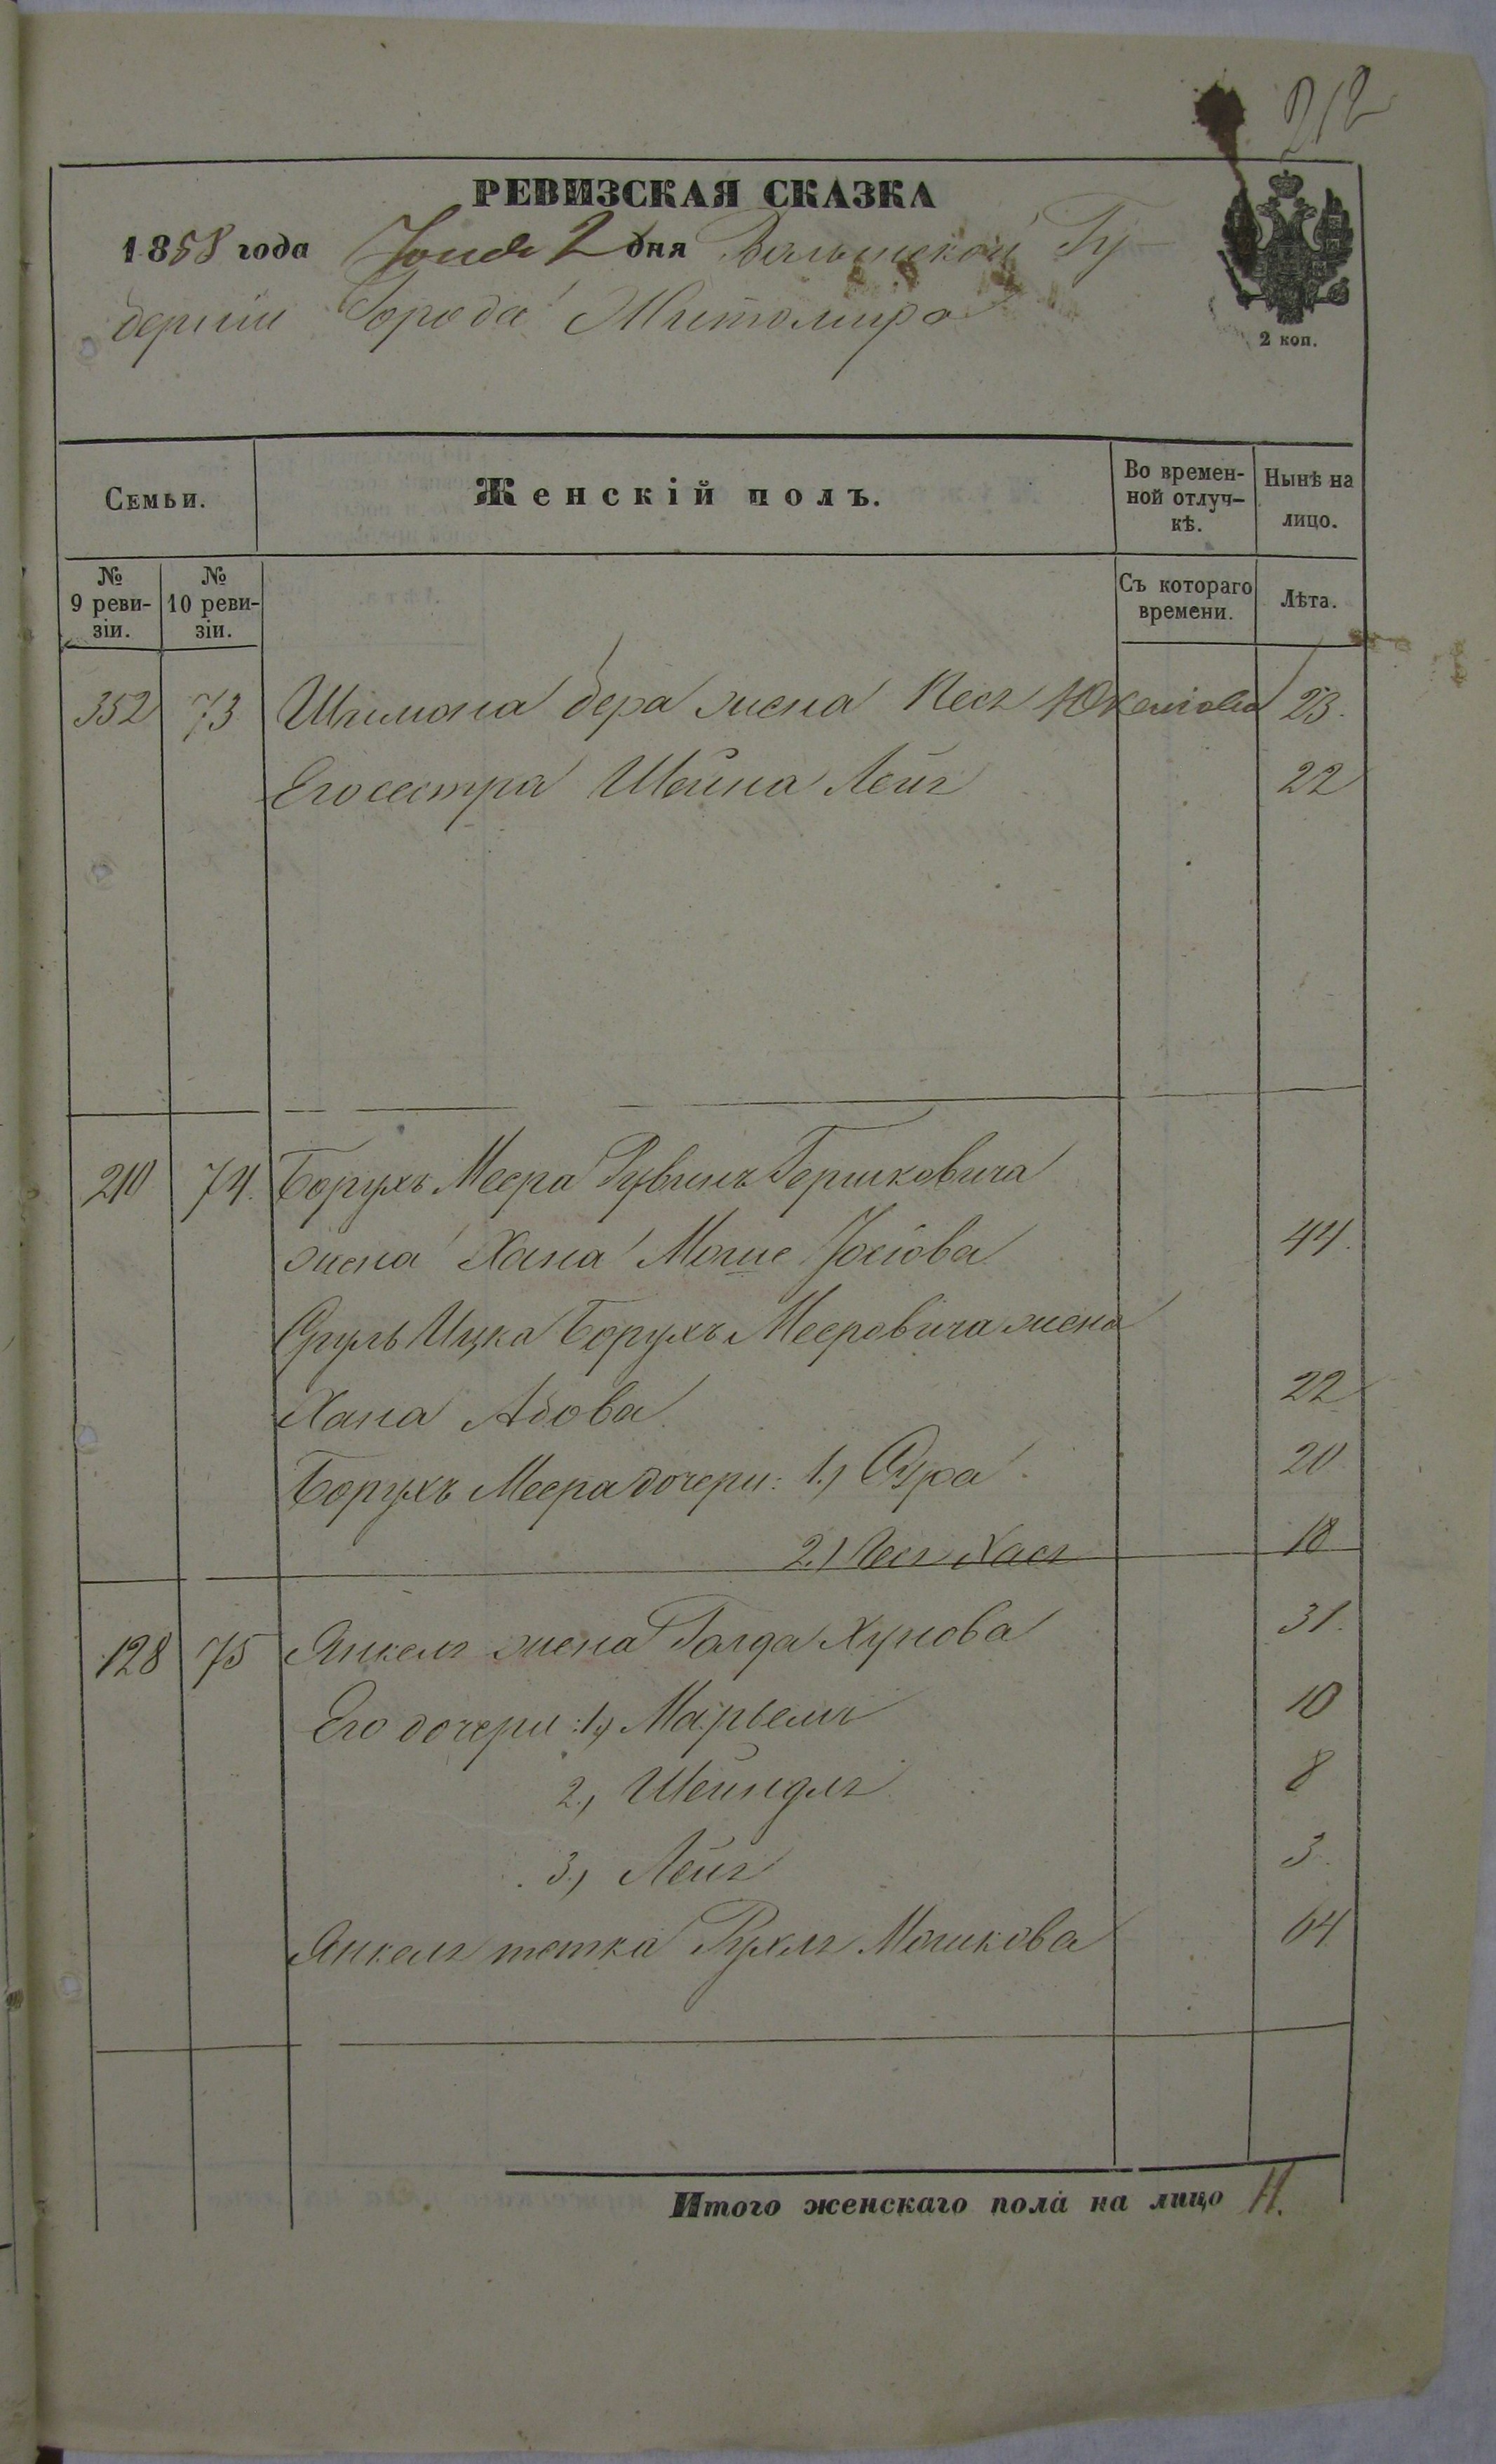 212
РЕВИЗСКАЯ СКАЗКА
1858 года Іюня 2 дня Волынской Гу-
берніи Города Житомира
2 коп.
Семьи.
Женскій полъ.
Во времен-
ной отлуч-
кѣ.
Нынѣ на
лицо.
№
9 реви-
зіи.
№
10 реви-
зіи.
Съ котораго
времени.
Лѣта.
352 73 Шимона Бера жена Песя 23.
Его сестра Шейна Лея 22
210 74. Борухъ Меера Рувинъ Гершковича
жена Хана Моше Іосіова 44.
Сруль Ицка Борухъ Мееровича жена
Хана Абова 22
Борухъ Меера дочери: 1.) Сура 20
2.) Песя Хася 18
128 75 Янкеля жена Голда Хунова 31.
Его дочери: 1.) Марьемя 10
2.) Шейндля 8
3.) Лея 3.
Янкеля тетка Рухля Мошкова 64
Итого женскаго пола на лицо 11.